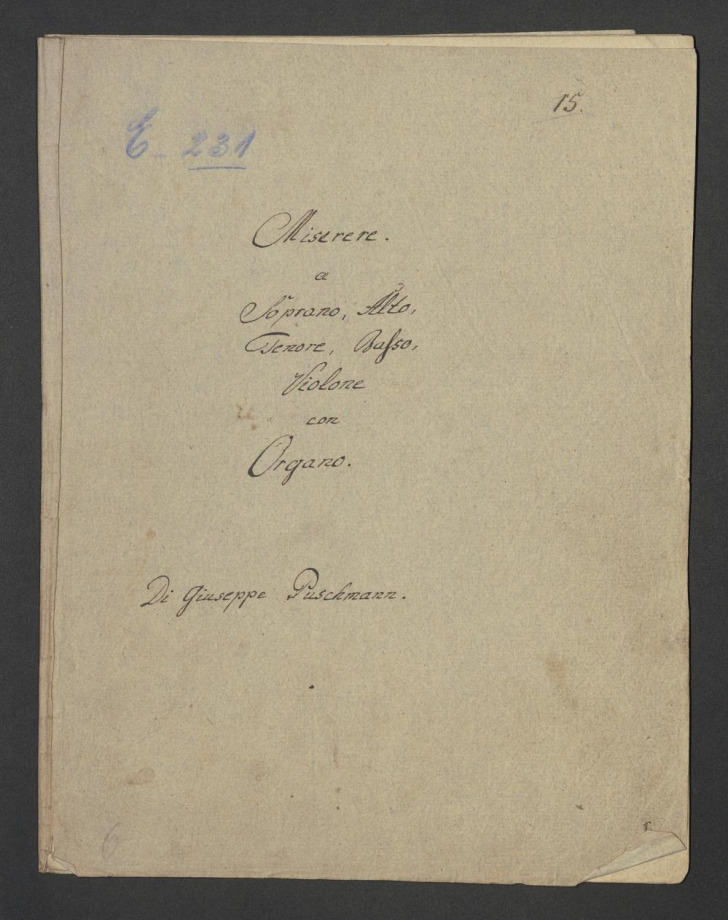 15.
E. 231
Miserere.
a
Soprano, Alto,
Tenore, Baſso,
Violone
con
Organo.
Di Giuseppe Puschmann.
6